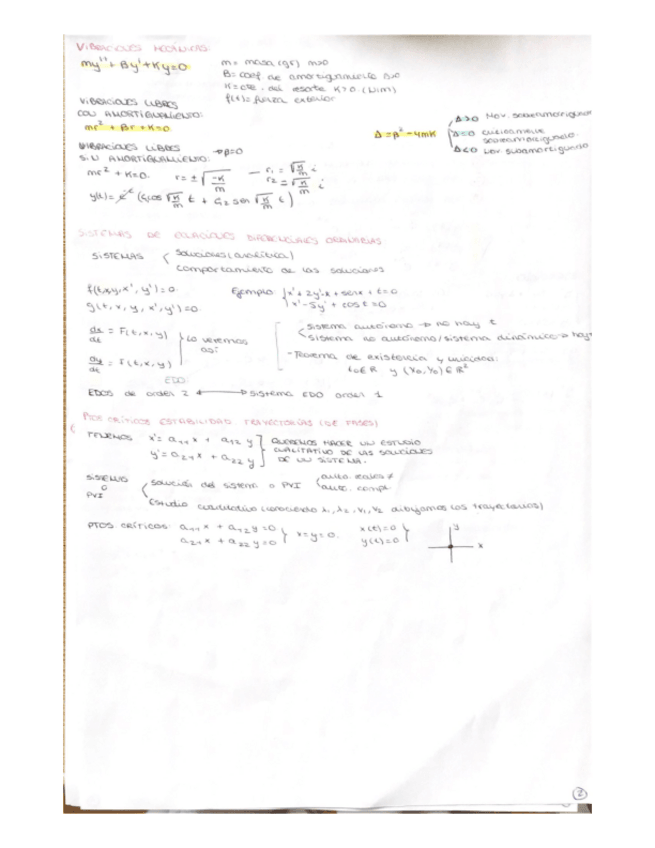 VIBRACIONES MECÁNICAS:
my'' + By' + Ky = 0
m = masa (gr) m>0
B = coef de amortiguamiento
K = cte. del resorte K>0 (N/m)
f(t) = fuerza exterior
VIBRACIONES LIBRES
CON AMORTIGUAMIENTO:
mr² + Br + K = 0
Δ = β² - 4mK
Δ>0 Mov. sobreamortiguado
Δ=0 críticamente
Δ<0 subamortiguado
VIBRACIONES LIBRES → β=0
SIN AMORTIGUAMIENTO:
mr² + K = 0. r = ± √(-K/m) — r₁ = √(K/m) i
r₂ = √(K/m) i
y(t) = (C₁cos √(K/m) t + C₂ sen √(K/m) t)
SISTEMAS DE ECUACIONES DIFERENCIALES ORDINARIAS
SISTEMAS { Soluciones (analítica)
comportamiento de las soluciones
f(t,x,y,x',y')=0. Ejemplo { x' + 2y' - x + senx + t = 0
g(t, x, y, x', y') = 0. x' - 5y' + cos t = 0
dx/dt = F(t, x, y) } Lo veremos así:
dy/dt = F(t, x, y)
sistema autónomo → no hay t
sistema no autónomo/sistema dinámico → hay
- Teorema de existencia y unicidad:
t₀ ∈ R y (x₀, y₀) ∈ R²
EDO:
EDOS de orden 2 ↔ Sistema EDO orden 1
PTOS CRÍTICOS ESTABILIDAD TRAYECTORIAS (DE FASES)
TENEMOS x' = a₁₁x + a₁₂y
y' = a₂₁x + a₂₂y
QUEREMOS HACER UN ESTUDIO
CUALITATIVO DE LAS SOLUCIONES
DE UN SISTEMA.
SISTEMA
o
PVI
solución del sistema o PVI { auto. reales ≠
auto. compl.
Estudio cualitativo (conociendo λ₁, λ₂, v₁, v₂ dibujamos las trayectorias)
PTOS CRÍTICOS: a₁₁x + a₁₂y = 0 } x=y=0. x(t)=0
a₂₁x + a₂₂y = 0 y(t)=0
y
x
2